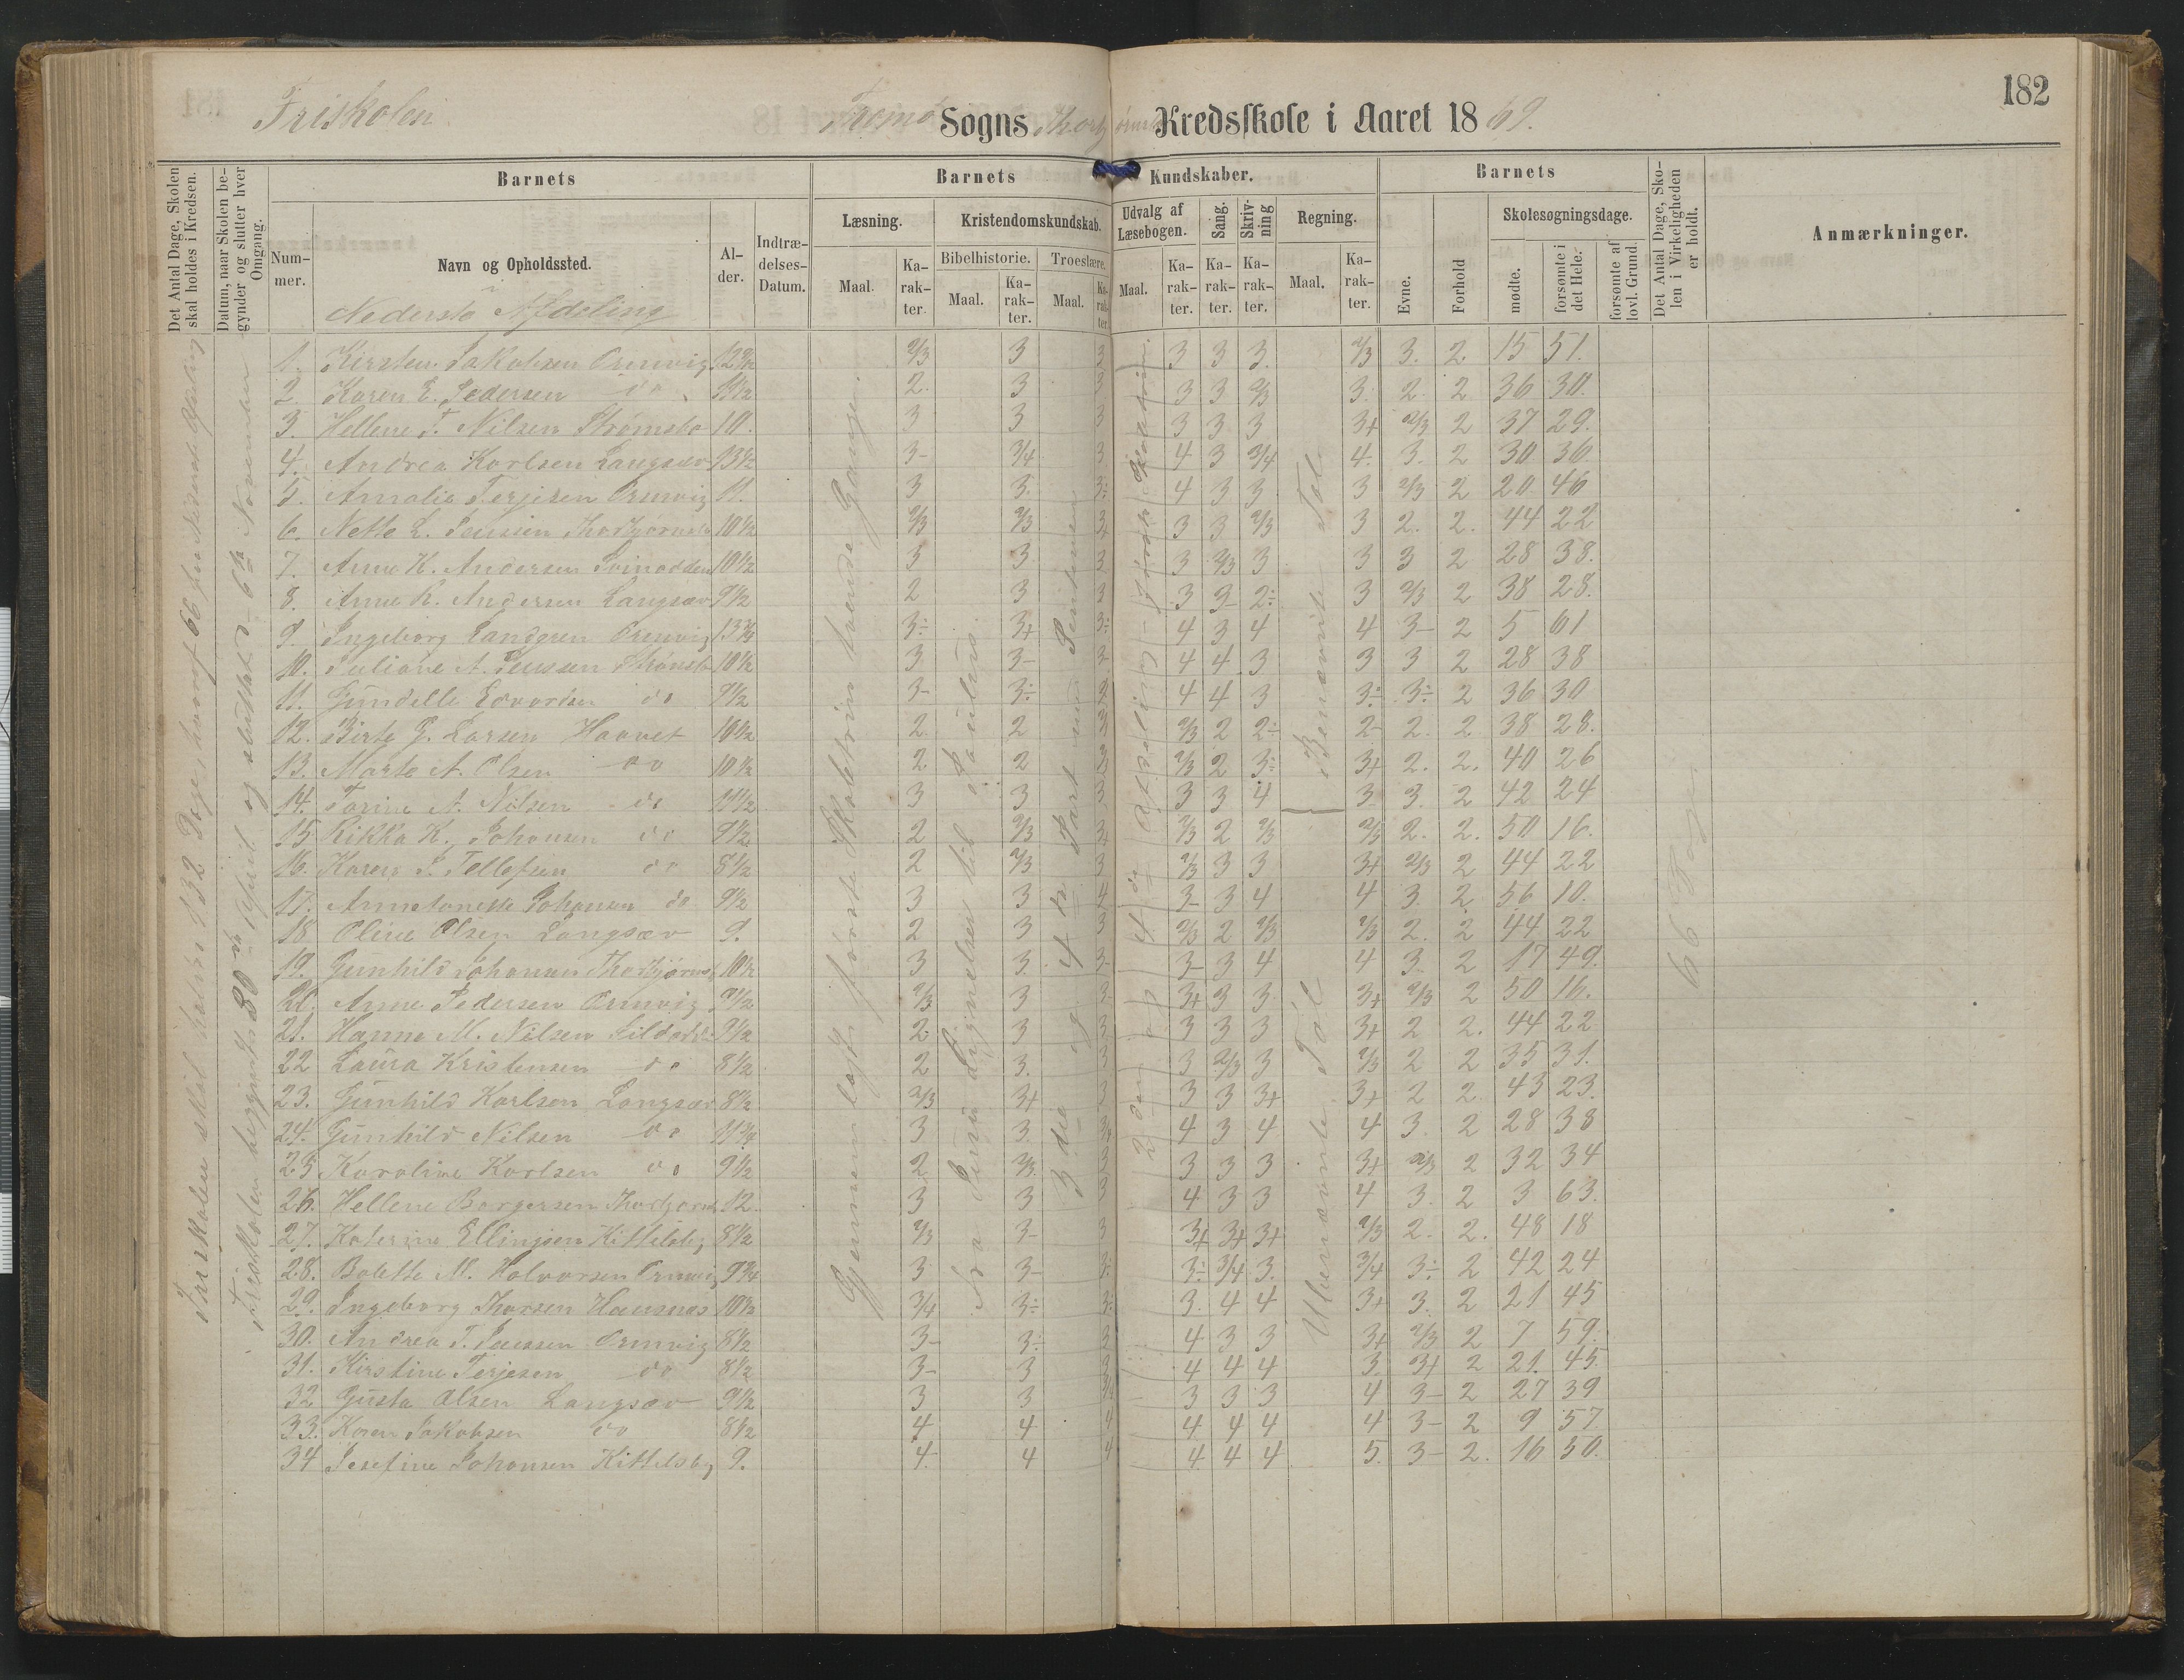 182
Friskolen
Tromø Sogns Thorbjørnsbo Kredsskole i Aaret 1869.
Det Antal Dage, Skolen skal holdes i Kredsen.
Datum, naar Skolen begynder og slutter hver Omgang.
Barnets
Nummer.
Navn og Opholdssted.
Alder.
Indtrædelses-Datum.
Barnets Kundskaber.
Læsning.
Maal.
Karakter.
Kristendomskundskab.
Bibelhistorie.
Maal.
Karakter.
Troeslære.
Maal.
Karakter.
Udvalg af Læsebogen.
Maal.
Karakter.
Sang.
Karakter.
Skrivning
Karakter.
Regning.
Maal.
Karakter.
Barnets
Evne.
Forhold
Skolesøgningsdage.
mødte.
forsømte i det Hele.
forsømte af lovl. Grund.
Det Antal Dage, Skolen i Virkeligheden er holdt.
Anmærkninger.
Nederste Afdeling
1. Kirsten Jakobsen Ormvig 12 2/3 3 3 3 3 3. 2/3 3. 2. 15 51.
2. Karen E. Pedersen do 11 1/2 2. 3 3 3 3 2/3 3. 2 2 36 30.
3. Hellene T. Nilsen Strømsbo 10. 3 3 3 3 3 3 3+ 2/3 2 37 29.
4. Andrea Karlsen Langsæv 13 1/2 3- 3/4 3 4 3 3/4 4. 3. 2 30 36
5. Amalie Terjesen Ormvig 11. 3 3. 3÷ 4 3 3 3 2/3 2 20 46
6. Nette L. Jenssen Thorbjørnsbo 10 1/2 2/3 2/3 3+ 3 3 2/3 3 2. 2. 44 22
7. Anne K. Andersen Svinodden 10 1/2 3 3 3 3 2/3 3 3 3 2 28 38.
8. Anne K. Andersen Langsæv 9 1/2 2 3 3 3 3- 2÷ 3 2/3 2 38 28.
9. Ingeborg Landgren Ormvig 3÷ 3+ 3÷ 4 3 4 4 3- 2 5 61
10. Juliane A. Jenssen Strømsbo 10 1/2 3 3- 3- 4 4 3 3 3 2 28 38
11. Gundelle Edvardsen do 9 1/2 3- 3÷ 4 4 3 3÷ 3÷ 2 36 30
12. Birte G. Larsen Haavet 10 1/2 2 2 2/3 2 2÷ 2- 2. 2 38 28.
13. Marte A. Olsen do 10 1/2 2 2 2/3 2 3÷ 3+ 2. 2. 40 26
14. Tarine N. Nilsen do 11 1/2 3 3 3 3 3 4 3 3. 2 42 24
15 Rikka K. Johansen do 9 1/2 2 2/3 3+ 2/3 2 2/3 2/3 2. 2. 50 16.
16. Karen S. Tellefsen do 8 1/2 2 2/3 3 2/3 3 3 3+ 2/3 2 44 22
17. Annetonette Johansen do 9 1/2 3 3 4 3- 3 4 4 3. 2 56 10.
18 Oline Olsen Langsæv 9. 2 3 3 2/3 2 2/3 2/3 2. 2 44 22
19. Gunhild Johansen Thorbjørnsb 10 1/2 3 3. 3- 3- 3 4 4 3. 2 17 49.
20. Anne Pedersen Ormvig 9 1/2 2/3 3 3- 3+ 3 3 3+ 2/3 2 50 16.
21. Hanna M. Nilsen Sildodden 9 1/2 2. 3 3 3 3 3 3+ 2 2. 44 22
22 Laura Kristensen do 8 1/2 2 3. 3 3 2/3 3 2/3 2 2 35 31.
23. Gunhild Karlsen Langsæv 8 1/2 2/3 3+ 3 3 3+ 3+ 2 2. 43 23.
24. Gunhild Nilsen do 11 3/4 3 3. 4 3 4 4 3. 2 28 38
25 Karoline Karlsen do 9 1/2 2 2/3 3 3 3 3 3+ 2/3 2 32 34
26. Hellene Børgersen Thorbjørnsb 12. 3 3 3 4 3 3 4 3. 2 3 63.
27. Katerine Ellingsen Kittelsbg 8 1/2 2/3 3- 3 3+ 3+ 3+ 2/3 2. 2. 48 18
28. Bolette M. Halvorsen Ormvig 9 3/4 3 3- 3÷ 3÷ 3/4 3. 3/4 3÷ 2 42 24
29. Ingeborg Thorsen Hausnæs 10 1/2 3/4 3÷ 3÷ 3. 4 4 3+ 3. 2 21 45
30. Andrea T. Jenssen Ormvig 8 1/2 3- 3÷ 3 4 3 3 3+ 2/3 2 7 59.
31. Kirstine Terjesen do 8 1/2 3- 3 3 4 4 4 3. 3+ 2 21. 45.
32 Gusta Olsen Langsæv 9 1/2 3 3 3/4 3 3 3 4 3- 2 27 39
33. Karen Jakobsen do 8 1/2 4 4 4 4 4 4 4 3- 2 9 57
34 Josefine Johansen Kittelsbg 9. 4. 4 4 4 4 4 5. 3- 2. 16 50.
Friskolen skal holdes i 132 Dage, hvoraf 66 paa Nederste Afdeling
Friskolen begyndte 30te April og sluttet d 6te November
Gjennemlæst første Skoletrin tvende Gange.
Fra Jesu Lignelser til Paulus.
3die og 4de Part med Sentenser
2den og 4de Afdeling
Ubenævnte Tal
Benævnte Tal
66 Dage.